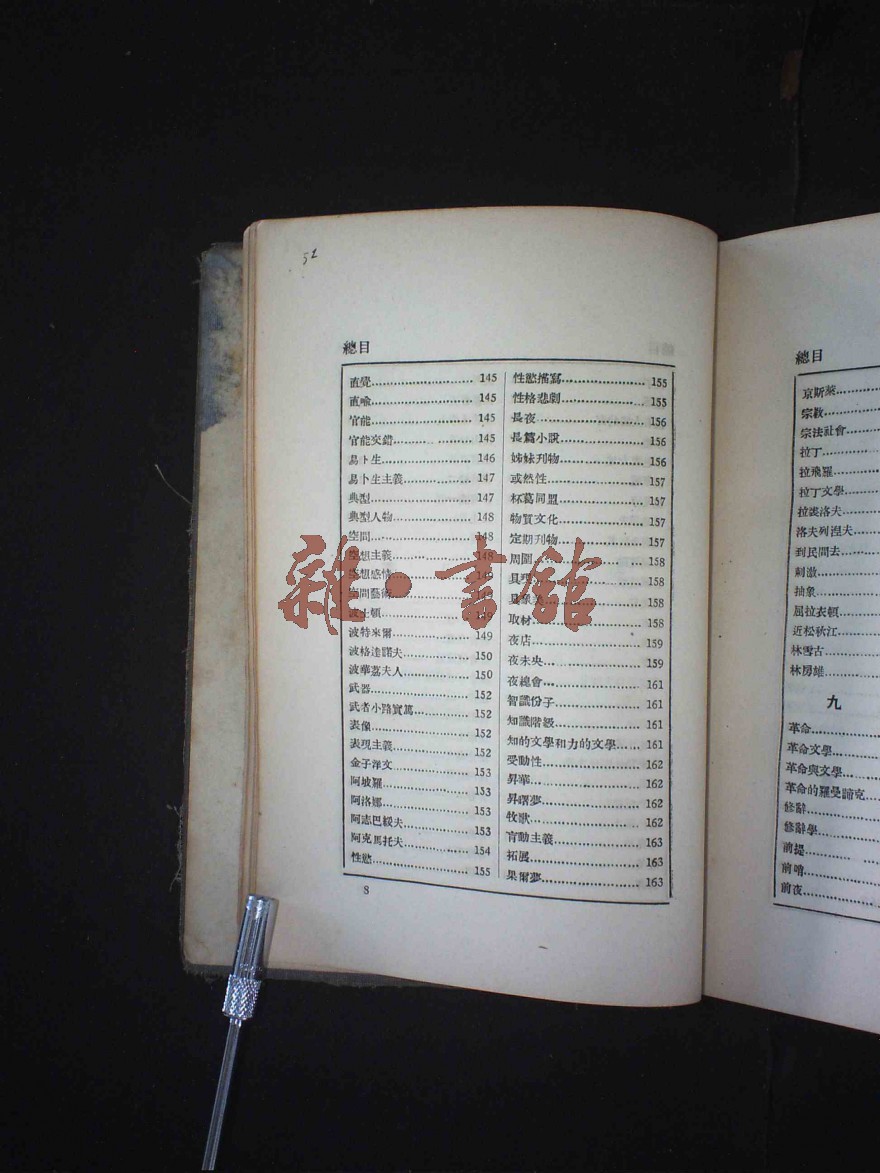 51
總目
直覺 145
直喻 145
官能 145
官能交錯 145
易卜生 146
易卜生主義 147
典型 147
典型人物 148
空間 148
空想主義 148
空想感情 149
空間藝術 149
波士頓 149
波特來爾 149
波格達諾夫 150
波華荔夫人 150
武器 152
武者小路實篤 152
表像 152
表現主義 152
金子洋文 153
阿坡羅 153
阿洛娜 153
阿志巴綏夫 153
阿克馬托夫 154
性慾 155
性慾描寫 155
性格悲劇 155
長夜 156
長篇小說 156
姊妹刊物 156
或然性 157
杯葛同盟 157
物質文化 157
定期刊物 157
周圍 158
158
158
取材 158
夜店 159
夜未央 159
夜總會 161
智識份子 161
知識階級 161
知的文學和力的文學 161
受動性 162
昇華 162
昇曙夢 162
牧歌 162
盲動主義 163
拓展 163
果爾夢 163
8
雜·書館
總目
京斯萊
宗教
宗法社會
拉丁
拉飛羅
拉丁文學
拉裘洛夫
洛夫列涅夫
到民間去
刺激
抽象
屈拉衣頓
近松秋江
林雪古
林房雄
九
革命
革命文學
革命與文學
革命的羅曼諦克
修辭
修辭學
前提
前哨
前夜